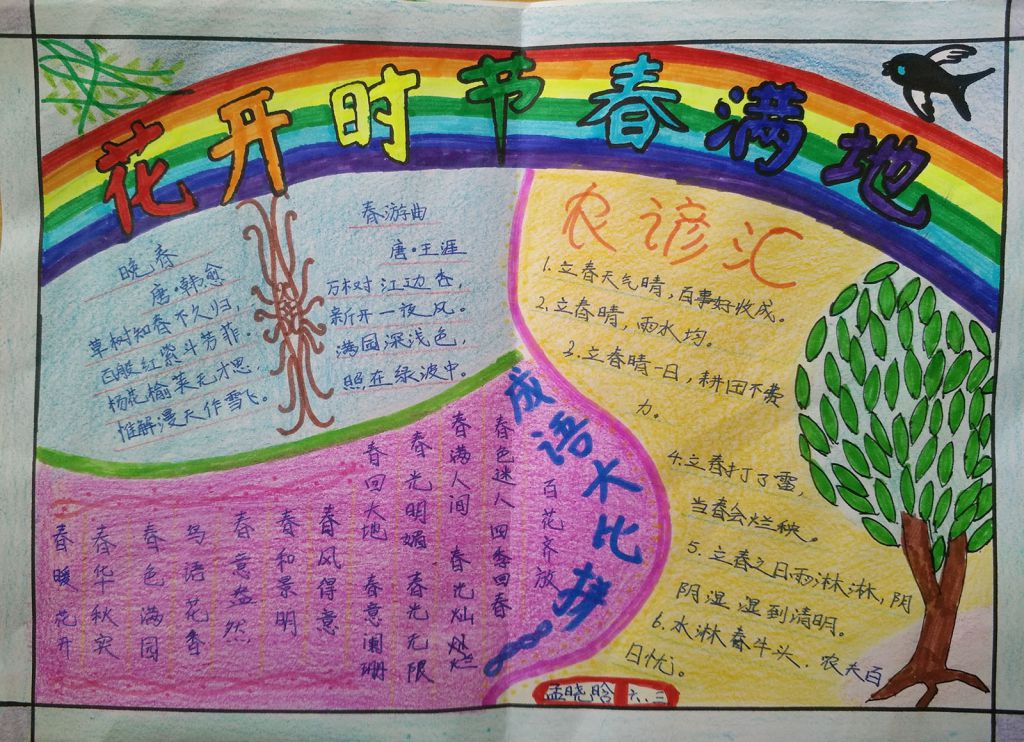 花开时节春满地
晚春
唐·韩愈
草树知春不久归，
百般红紫斗芳菲。
杨花榆荚无才思，
惟解漫天作雪飞。
春游曲
唐·王涯
万树江边杏，
新开一夜风。
满园深浅色，
照在绿波中。
农谚汇
1.立春天气晴，百事好收成。
2.立春晴，雨水均。
3.立春晴一日，耕田不费
力。
4.立春打了雷，
当春会烂秧。
5.立春之日雨淋淋，阴
阴湿湿到清明。
6.水淋春牛头，农夫百
日忧。
成语大比拼
百花齐放
春色迷人 四季回春
春满人间 春光灿烂
春光明媚 春光无限
春回大地 春意阑珊
春风得意
春和景明
春意盎然
鸟语花香
春色满园
春华秋实
春暖花开
孟晓晗 六.三